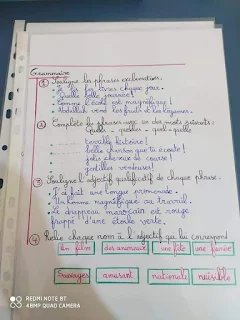 Grammaire
① Souligne les phrases exclamatives.
- Je lis des livres chaque jour.
- Quelle belle journée!
- Comme l'école est magnifique!
- Abdellah vend les fruits et les légumes.
② Complète les phrases avec un des mots suivants:
Quels - quelles - quel - quelle
terrible histoire!
belle chanson que tu écoute!
jolis chevaux de course!
gentilles vendeuses!
③ Souligne l'adjectif qualificatif de chaque phrase.
- J'ai fait une longue promenade.
- Un homme magnifique au travail.
- Le drapeau marocain est rouge
frappé d'une étoile verte.
④ Relie chaque nom à l'adjectif qui lui correspond
un film des animaux une fête une fumée
Sauvages amusant nationale nuisible
REDMI NOTE 8T
48MP QUAD CAMERA